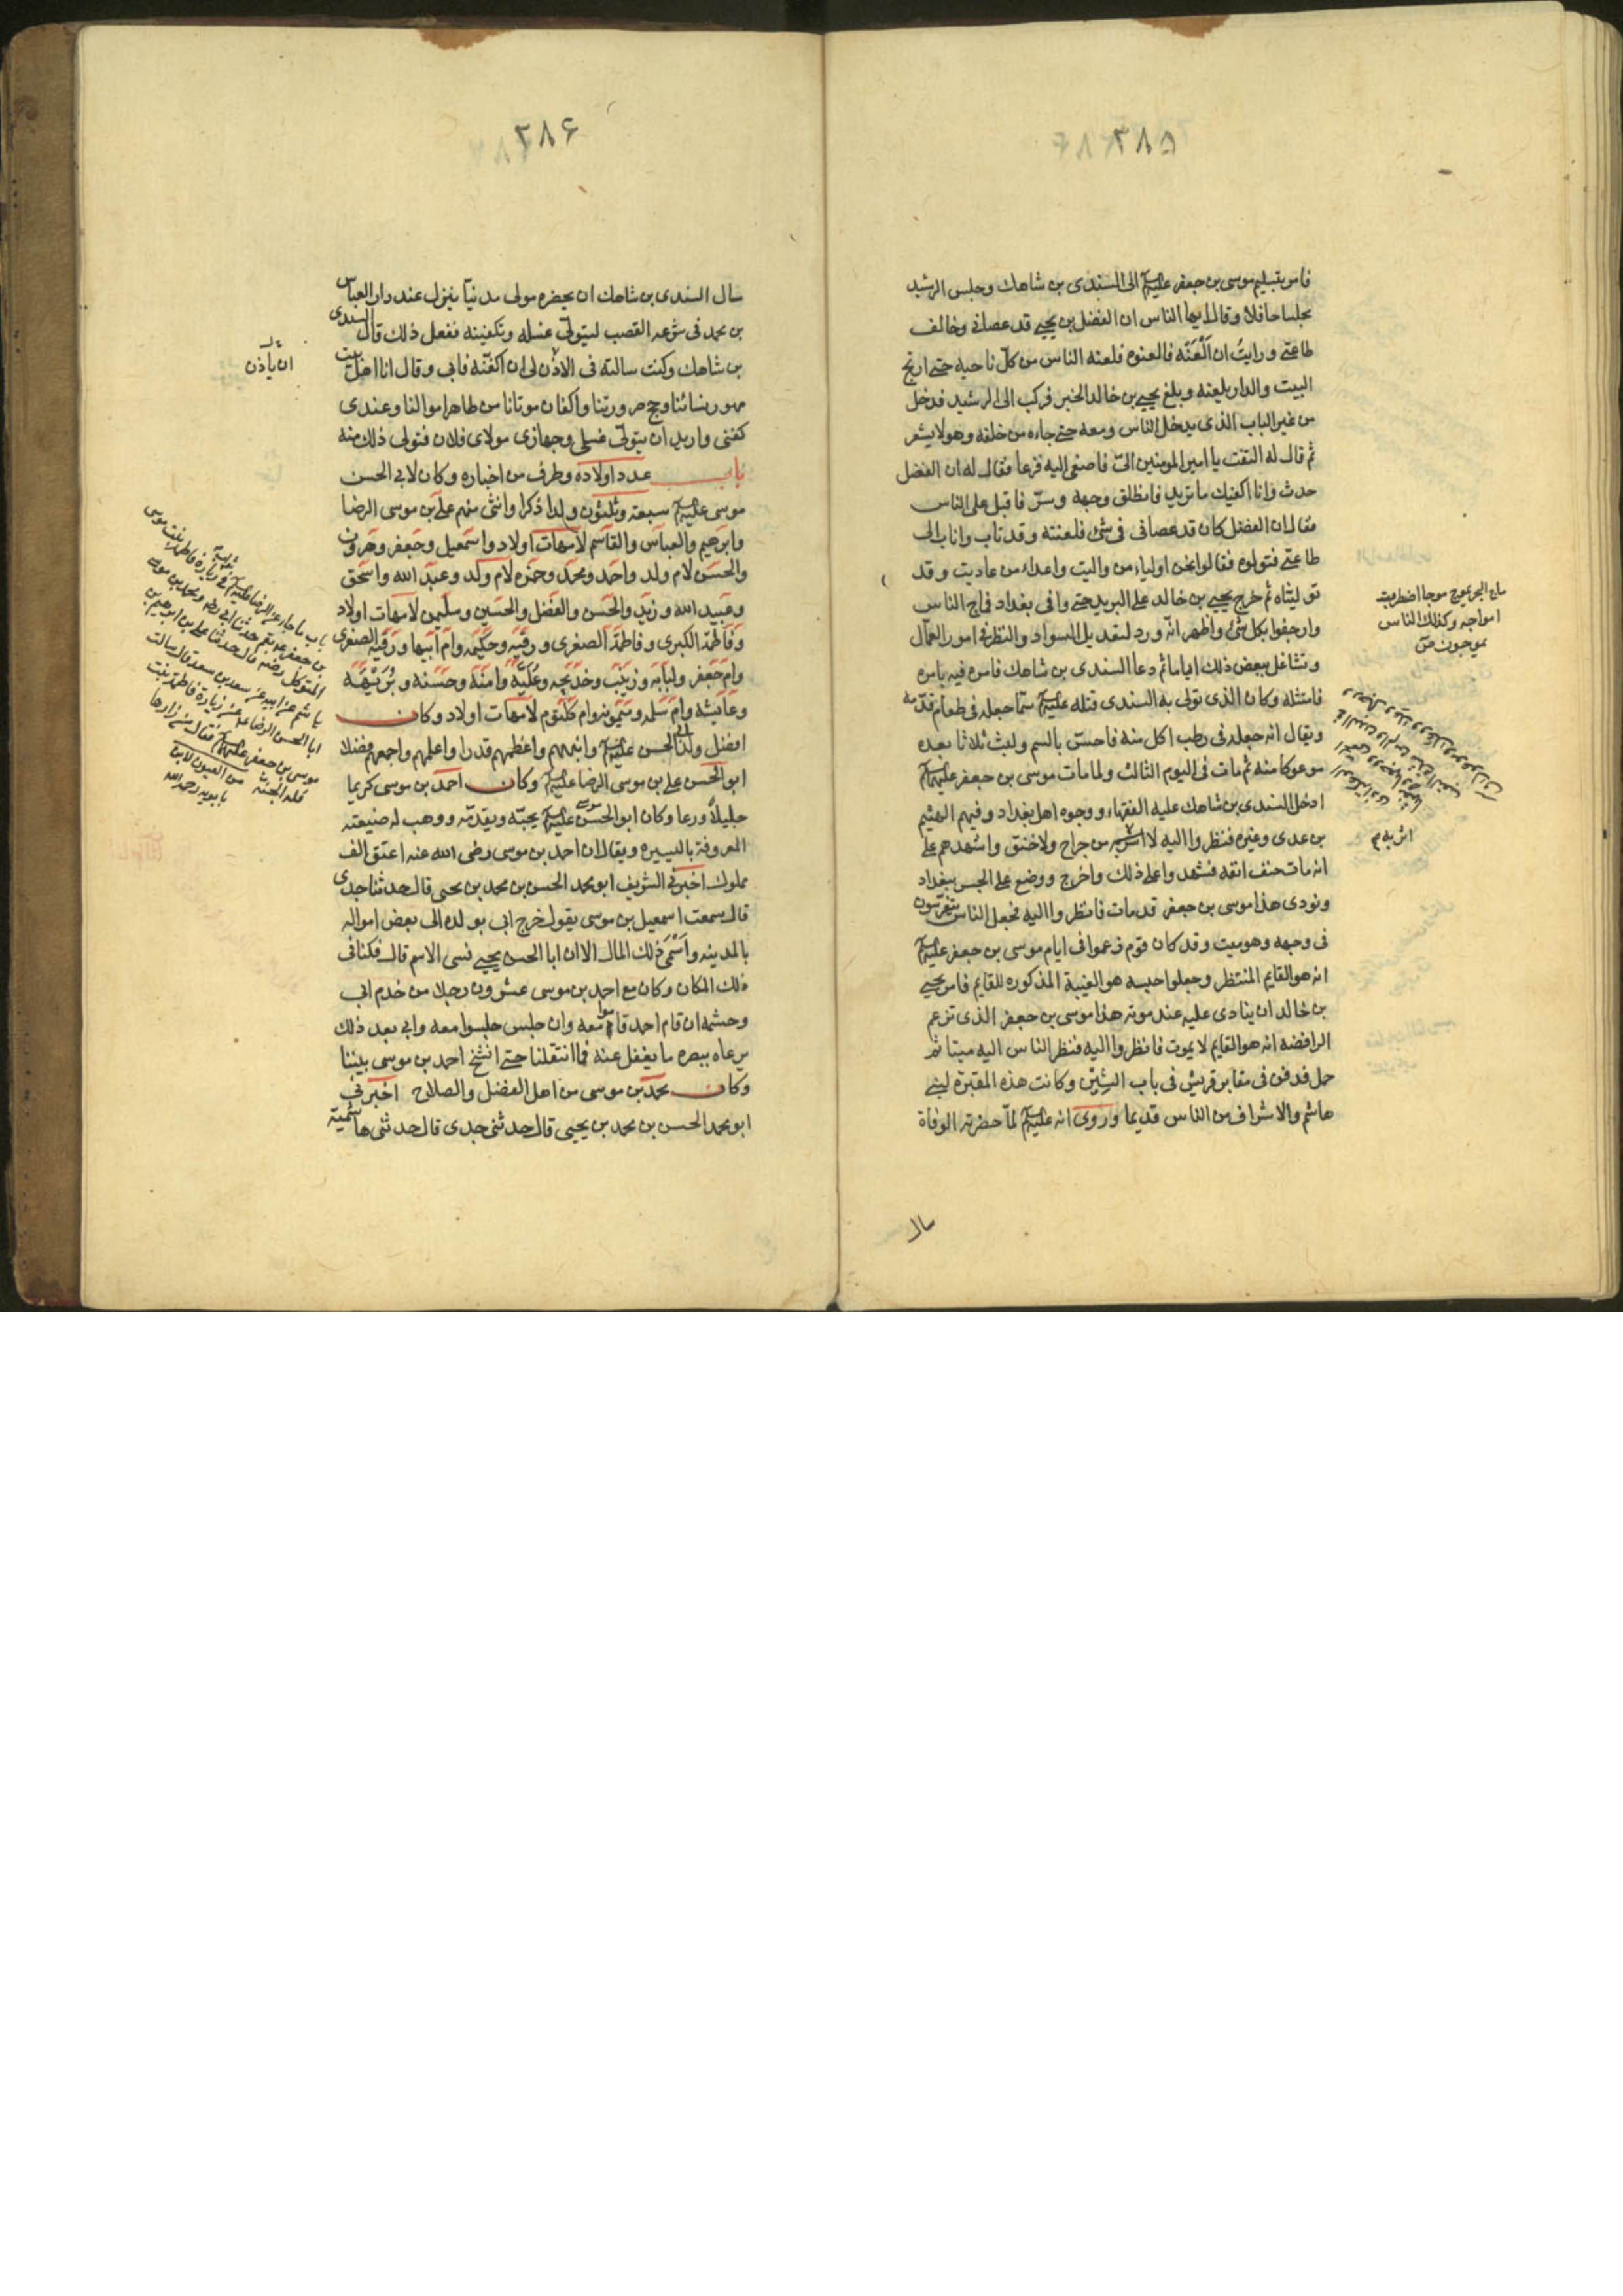 ۳۸۵
فامر بتسليم موسى بن جعفر عليه السلم الى السندى بن شاهك وجلس الرشيد
مجلسا حافلا وقال ايها الناس ان الفضل بن يحيى قد عصانى وخالف
طاعتى ورايت ان العنه فالعنوه فلعنه الناس من كل ناحيه حتى ارتج
البيت والدار بلعنه وبلغ يحيى بن خالد الخبر فركب الى الرشيد فدخل
من غير الباب الذى يدخل الناس ومعه حتى جاءه من خلفه وهو لا يشعر
ثم قال له التفت يا امير المومنين الىّ فاصغى اليه فزعا فقال له ان الفضل
حدث وانا اكفيك ما تريد فانطلق وجهه وسرّ فاقبل على الناس
فقال ان الفضل كان قد عصانى فى شئ فلعنته وقد تاب واناب الى
طاعتى فتولوه فقالوا نحن اولياء من واليت واعداء من عاديت وقد
توليناه ثم خرج يحيى بن خالد على البريد حتى وافى بغداد فماج الناس
وارجفوا بكل شئ واظهر انه ورد لتعديل السواد والنظر فى امور العمال
وتشاغل ببعض ذلك اياما ثم دعا السندى بن شاهك فامره فيه بامره
فامتثله وكان الذى تولى به السندى قتله عليه السلم سمّا جعله فى طعام قدّمه
ويقال انه جعله فى رطب اكل منه فاحسّ بالسم ولبث ثلاثا بعده
موعوكا منه ثم مات فى اليوم الثالث ولما مات موسى بن جعفر عليهما السلم
ادخل السندى بن شاهك عليه الفقهاء ووجوه اهل بغداد وفيهم الهيثم
بن عدى وغيره فنظروا اليه لا اثر به من جراح ولا خنق واشهدهم على
انه مات حتف انفه فشهدوا على ذلك واخرج ووضع على الجسر ببغداد
ونودى هذا موسى بن جعفر قد مات فانظروا اليه فجعل الناس يتفرسون
فى وجهه وهو ميت وقد كان قوم زعموا فى ايام موسى بن جعفر عليه السلم
انه هو القايم المنتظر وجعلوا حبسه هو الغيبة المذكوره للقايم فامر يحيى
بن خالد ان ينادى عليه عند موته هذا موسى بن جعفر الذى تزعم
الرافضه انه هو القايم لا يموت فانظروا اليه فنظر الناس اليه ميتا ثم
حمل فدفن فى مقابر قريش فى باب التين وكانت هذه المقبرة لبنى
هاشم والاشراف من الناس قديما وروى انه عليه السلم لما حضرته الوفاة
سال
ماج البحر يموج موجا اضطربت
امواجه وكذلك الناس
يموجون ص
اثر به م
۳۸۶
سال السندى بن شاهك ان يحضره مولى مدنيا ينزل عند دار العباس
بن محمد فى مشرعه القصب ليتولى غسله وتكفينه ففعل ذلك قال السندى
بن شاهك وكنت سالته فى الاذن لى ان اكفنه فابى وقال انا اهل بيت
مهور نسائنا وحج صرورتنا واكفان موتانا من طاهر اموالنا وعندى
كفنى واريد ان يتولى غسلى وجهازى مولاى فلان فتولى ذلك منه
باب عدد اولاده وطرف من اخباره وكان لابى الحسن
موسى عليه السلم سبعة وثلثون ولدا ذكرا وانثى منهم على بن موسى الرضا
وابرهيم والعباس والقاسم لامهات اولاد واسمعيل وجعفر وهرون
والحسن لام ولد واحمد ومحمد وحمزه لام ولد وعبد الله واسحق
وعبيد الله وزيد والحسن والفضل والحسين وسليمن لامهات اولاد
وفاطمة الكبرى وفاطمة الصغرى ورقيه وحكيمه وام ابيها ورقيه الصغرى
وام جعفر ولبابه وزينب وخديجه وعليّة وامنة وحسنه وبريهه
وعايشه وام سلمه وميمونه وام كلثوم لامهات اولاد وكان
افضل ولد ابى الحسن عليه السلم وانبههم واعظمهم قدرا واعلمهم واجمعهم فضلا
ابو الحسن على بن موسى الرضا عليه السلم وكان احمد بن موسى كريما
جليلا ورعا وكان ابو الحسن موسى عليه السلم يحبه ويقدمه ووهب له ضيعته
المعروفة باليسيره ويقال ان احمد بن موسى رضى الله عنه اعتق الف
مملوك اخبرنى الشريف ابو محمد الحسن بن محمد بن يحيى قال حدثنا جدى
قال سمعت اسمعيل بن موسى يقول خرج ابى بولده الى بعض امواله
بالمدينه واسمى ذلك المال الا ان ابا الحسن يحيى نسى الاسم قال فكنا فى
ذلك المكان وكان مع احمد بن موسى عشرون رجلا من خدم ابى
وحشمه ان قام احمد قاموا معه وان جلس جلسوا معه وابى بعد ذلك
يرعاه ببصره ما يغفل عنه فما انتقلنا حتى انشخ احمد بن موسى بيننا
وكان محمد بن موسى من اهل الفضل والصلاح اخبرنى
ابو محمد الحسن بن محمد بن يحيى قال حدثنى جدى قال حدثنى هاشمية
ان ياذن
باب ما جاء عن الرضا عليه السلم فى زيارة فاطمة بنت موسى
ابا الحسن الرضا عن زيارة فاطمة بنت
موسى بن جعفر عليهما السلم فقال من زارها
فله الجنة من العيون لابن
بابويه رحمه الله